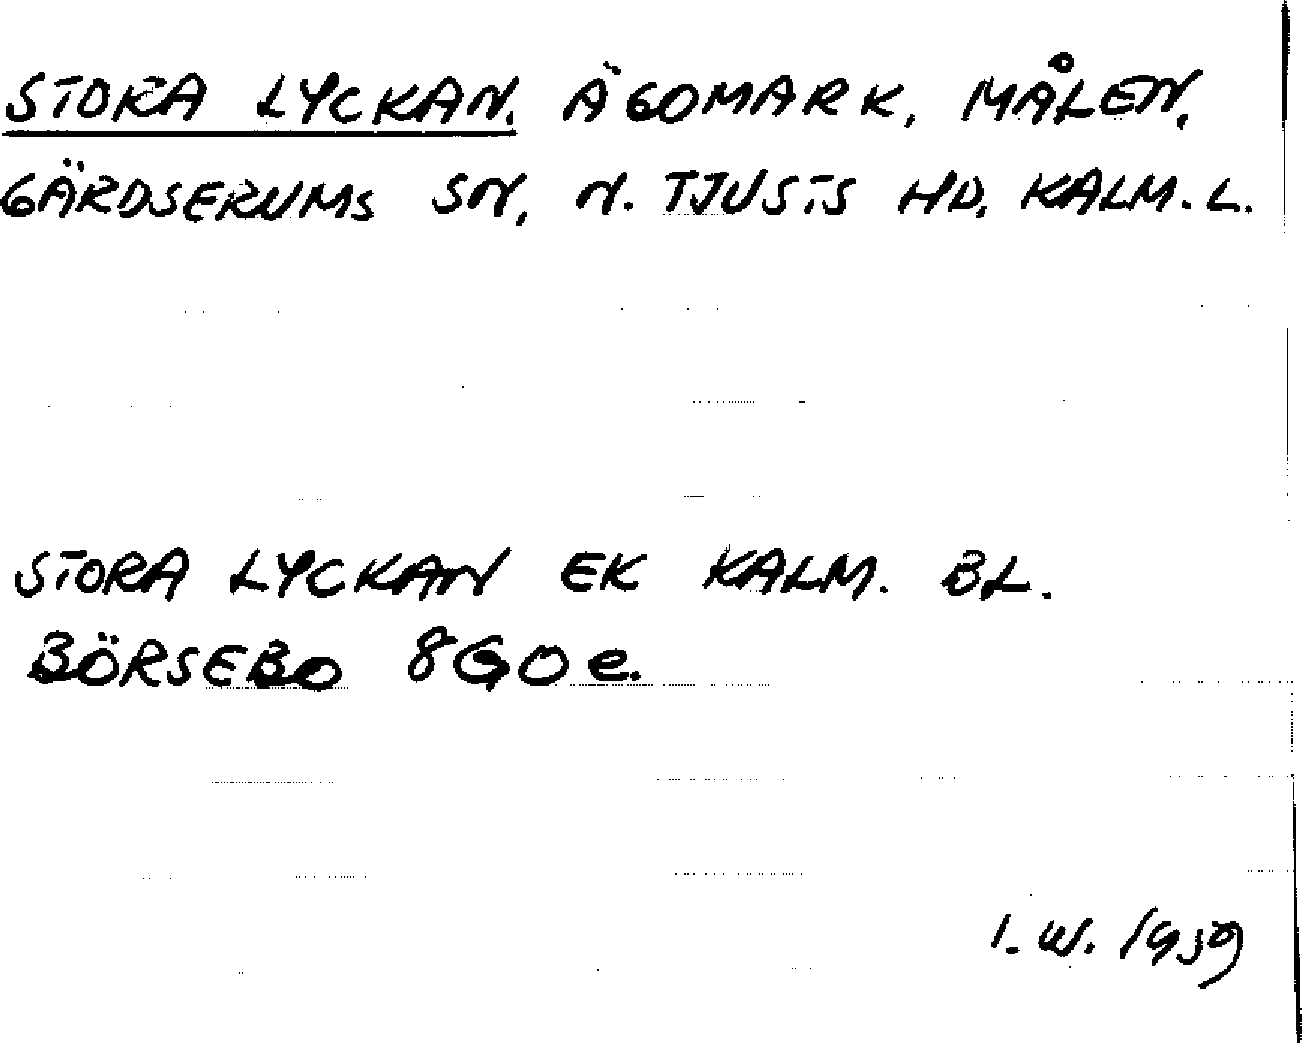 STORA LYCKAN. ÄGOMARK, MÅLEN,
GÄRDSERUMS SN, N. TJUSTS HD, KALM. L.
STORA LYCKAN EK KALM. BL.
BÖRSEBO 8G0e.
I. W. 1959